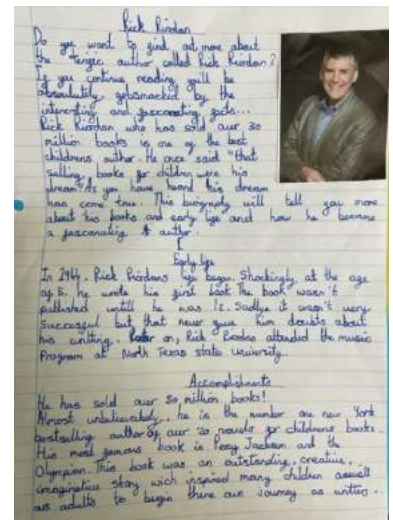 Rick Riordan
Do you want to find out more about
the terrific author called Rick Riordan?
If you continue reading you'll be
absolutely gobsmacked by the
interesting and fascanating facts...
Rick Riordan who has sold over 30
million books is one of the best
childrens author. He once said "that
selling books for children were his
dream". As you have heard his dream
has come true. This biography will tell you more
about his books and early life and how he became
a fascanating author.
Early life
In 1964, Rick Riordans life began. Shockingly, at the age
of 8, he wrote his first book. The book wasn't
published untill he was 12. Sadlye it wasn't very
Successful but that never gave him doubts about
his writting. Later on, Rick attended the music
Program at North Texas state university
Accomplishments
He has sold over 30 million books!
Almost unbelievabley, he is the number one new York
bestselling author of over 20 novels for childrens books.
His most famous book is Percy Jackson and the
Olympian. This book was an outstanding, creative,
imaginative story wich inspired many children aswell
as adults to begin there own Journey as writters.